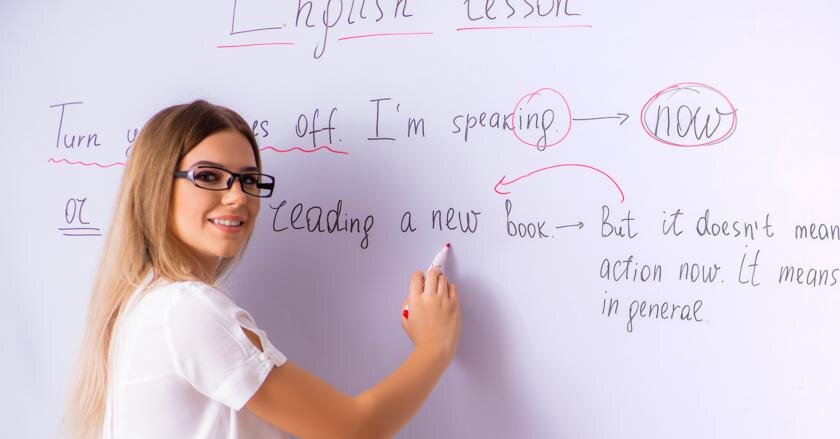 English lesson
Turn off. I'm speaking. → now
or reading a new book. → But it doesn't mean
action now. It means
in general.